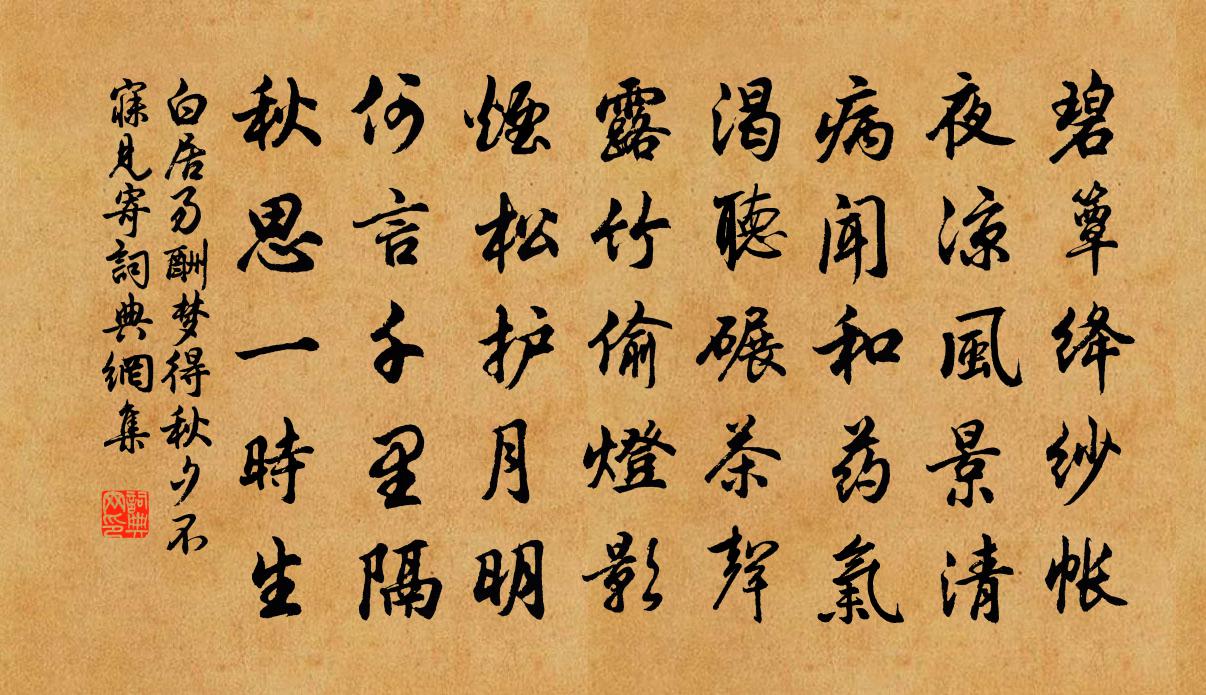 碧簟绛纱帐
夜凉風景清
病闻和药氣
渴聽碾茶聲
露竹偷燈影
煙松护月明
何言千里隔
秋思一時生
白居易酬梦得秋夕不
寐見寄詞典網集
詞典
网印